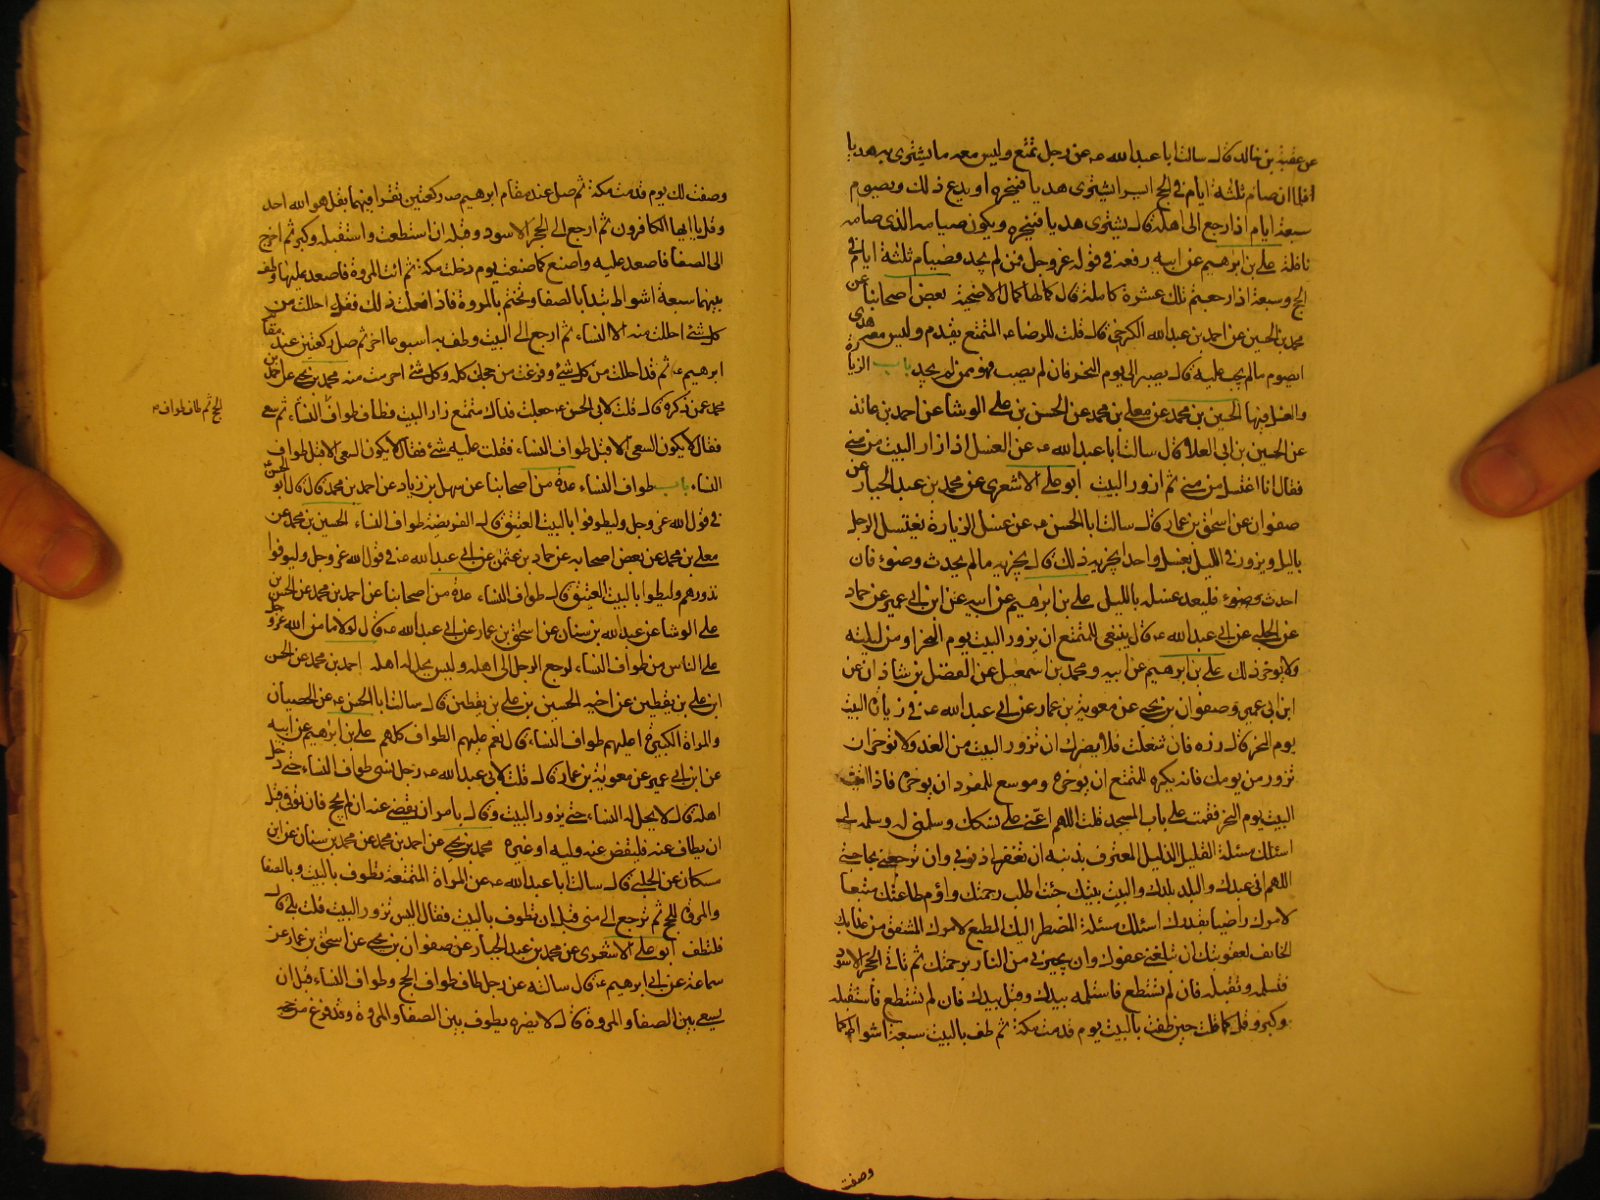 عن عقبة بن خالد قال سالت ابا عبدالله عه عن رجل تمتع وليس معه ما يشترى به هديا
فلما ان صام ثلثة ايام فى الحج ايسر ايشترى هديا فينحره او يدع ذلك ويصوم
سبعة ايام اذا رجع الى اهله قال يشترى هديا فينحره ويكون صيامه الذى صامه
نافلة على بن ابرهيم عن ابيه رفعه فى قوله عز وجل فمن لم يجد فصيام ثلثة ايام فى
الحج وسبعة اذا رجعتم تلك عشرة كاملة قال كمالها كمال الاضحية بعض اصحابنا عن
محمد بن الحسين عن احمد بن عبدالله الكرخى قال قلت للرضا عه المتمتع يقدم وليس معه هدى
ايصوم ما لم يجب عليه قال يصبر الى يوم النحر فان لم يصب فهو ممن لم يجد باب الزيارة
والغسل فيها الحسين بن محمد عن معلى بن محمد عن الحسن بن على الوشا عن احمد بن عائذ
عن الحسين بن ابى العلا قال سالت ابا عبدالله عه عن الغسل اذا زار البيت من منى
فقال انا اغتسل من منى ثم ازور البيت ابو على الاشعرى عن محمد بن عبد الجبار عن
صفوان عن اسحق بن عمار قال سالت ابا الحسن عه عن غسل الزيارة يغتسل الرجل
بالليل ويزور فى الليل بغسل واحد ايجزيه ذلك قال يجزيه ما لم يحدث وضوء فان
احدث وضوء فليعد غسله بالليل على بن ابرهيم عن ابيه عن ابن ابى عمير عن حماد
عن الحلبى عن ابى عبدالله عه قال ينبغى للمتمتع ان يزور البيت يوم النحر او من ليلته
ولا يوخر ذلك على بن ابرهيم عن ابيه ومحمد بن اسمعيل عن الفضل بن شاذان عن
ابن ابى عمير وصفوان بن يحيى عن معوية بن عمار عن ابى عبدالله عه فى زيارة البيت
يوم النحر قال زره فان شغلت فلا يضرك ان تزور البيت من الغد ولا توخر ان
تزور من يومك فانه يكره للمتمتع ان يوخره وموسع للمفرد ان يوخره فاذا اتيت
البيت يوم النحر فقمت على باب المسجد قلت اللهم اعنى على نسكك وسلمنى له وسلمه لى
اسئلك مسئلة العليل الذليل المعترف بذنبه ان تغفر لى ذنوبى وان ترجعنى بحاجتى
اللهم انى عبدك والبلد بلدك والبيت بيتك جئت اطلب رحمتك واؤم طاعتك متبعا
لامرك راضيا بقدرك اسئلك مسئلة المضطر اليك المطيع لامرك المشفق من عذابك
الخائف لعقوبتك ان تبلغنى عفوك وان تجيرنى من النار برحمتك ثم تاتى الحجر الاسود
فتستلمه وتقبله فان لم تستطع فاستلمه بيدك وقبل يدك فان لم تستطع فاستقبله
وكبر وقل كما قلت حين طفت بالبيت يوم قدمت مكة ثم طف بالبيت سبعة اشواط كما
وصفت
وصفت لك يوم قدمت مكة ثم صل عند مقام ابرهيم عه ركعتين تقرا فيهما بقل هو الله احد
وقل يا ايها الكافرون ثم ارجع الى الحجر الاسود وقبله ان استطعت واستقبله وكبر ثم اخرج
الى الصفا فاصعد عليه واصنع كما صنعت يوم دخلت مكة ثم ائت المروة فاصعد عليها وطف
بينهما سبعة اشواط تبدا بالصفا وتختم بالمروة فاذا فعلت ذلك فقد احللت من
كل شئ احللت منه الا النساء ثم ارجع الى البيت وطف به اسبوعا اخر ثم صل ركعتين عند مقام
ابرهيم عه ثم قد احللت من كل شئ وفرغت من حجك كله وكل شئ احرمت منه محمد بن يحيى عن احمد بن
محمد عمن ذكره قال قلت لابى الحسن عه جعلت فداك متمتع زار البيت فطاف طواف النساء ثم سعى
الحج ثم طاف طواف
فقال لا يكون السعى الا قبل طواف النساء فقلت عليه شئ فقال لا يكون السعى الا قبل طواف
النساء باب طواف النساء عدة من اصحابنا عن سهل بن زياد عن احمد بن محمد قال قال ابو الحسن
فى قول الله عز وجل وليطوفوا بالبيت العتيق قال الفريضة طواف النساء الحسين بن محمد عن
معلى بن محمد عن بعض اصحابه عن حماد بن عثمن عن ابى عبدالله عه فى قول الله عز وجل وليوفوا
نذورهم وليطوا بالبيت العتيق قال طواف النساء عدة من اصحابنا عن احمد بن محمد عن الحسن بن
على الوشا عن عبدالله بن سنان عن اسحق بن عمار عن ابى عبدالله عه قال لولا ما من الله عز وجل
على الناس من طواف النساء لرجع الرجل الى اهله وليس يحل له اهله احمد بن محمد عن الحسن
ابن على بن يقطين عن اخيه الحسين بن على بن يقطين قال سالت ابا الحسن عه عن الخصيان
والمراة الكبيرة اعليهم طواف النساء قال نعم عليهم الطواف كلهم على بن ابرهيم عن ابيه
عن ابن ابى عمير عن معوية بن عمار قال قلت لابى عبدالله عه رجل نسى طواف النساء حتى دخل
اهله قال لا يحل له النساء حتى يزور البيت وقال يامر ان يقضى عنه ان لم يحج فان توفى قبل
ان يطاف عنه فليقض عنه وليه او غيره محمد بن يحيى عن احمد بن محمد عن محمد بن سنان عن ابن
مسكان عن الحلبى قال سالت ابا عبدالله عه عن المراة المتمتعة تطوف بالبيت وبالصفا
والمروة للحج ثم ترجع الى منى قبل ان تطوف بالبيت فقال اليس تزور البيت قلت بلى قال
فلتطف ابو على الاشعرى عن محمد بن عبد الجبار عن صفوان بن يحيى عن اسحق بن عمار عن
سماعة عن ابى ابرهيم عه قال سالته عن رجل طاف طواف الحج وطواف النساء قبل ان
يسعى بين الصفا والمروة قال لا يضره يطوف بين الصفا والمروة وقد فرغ من حجه